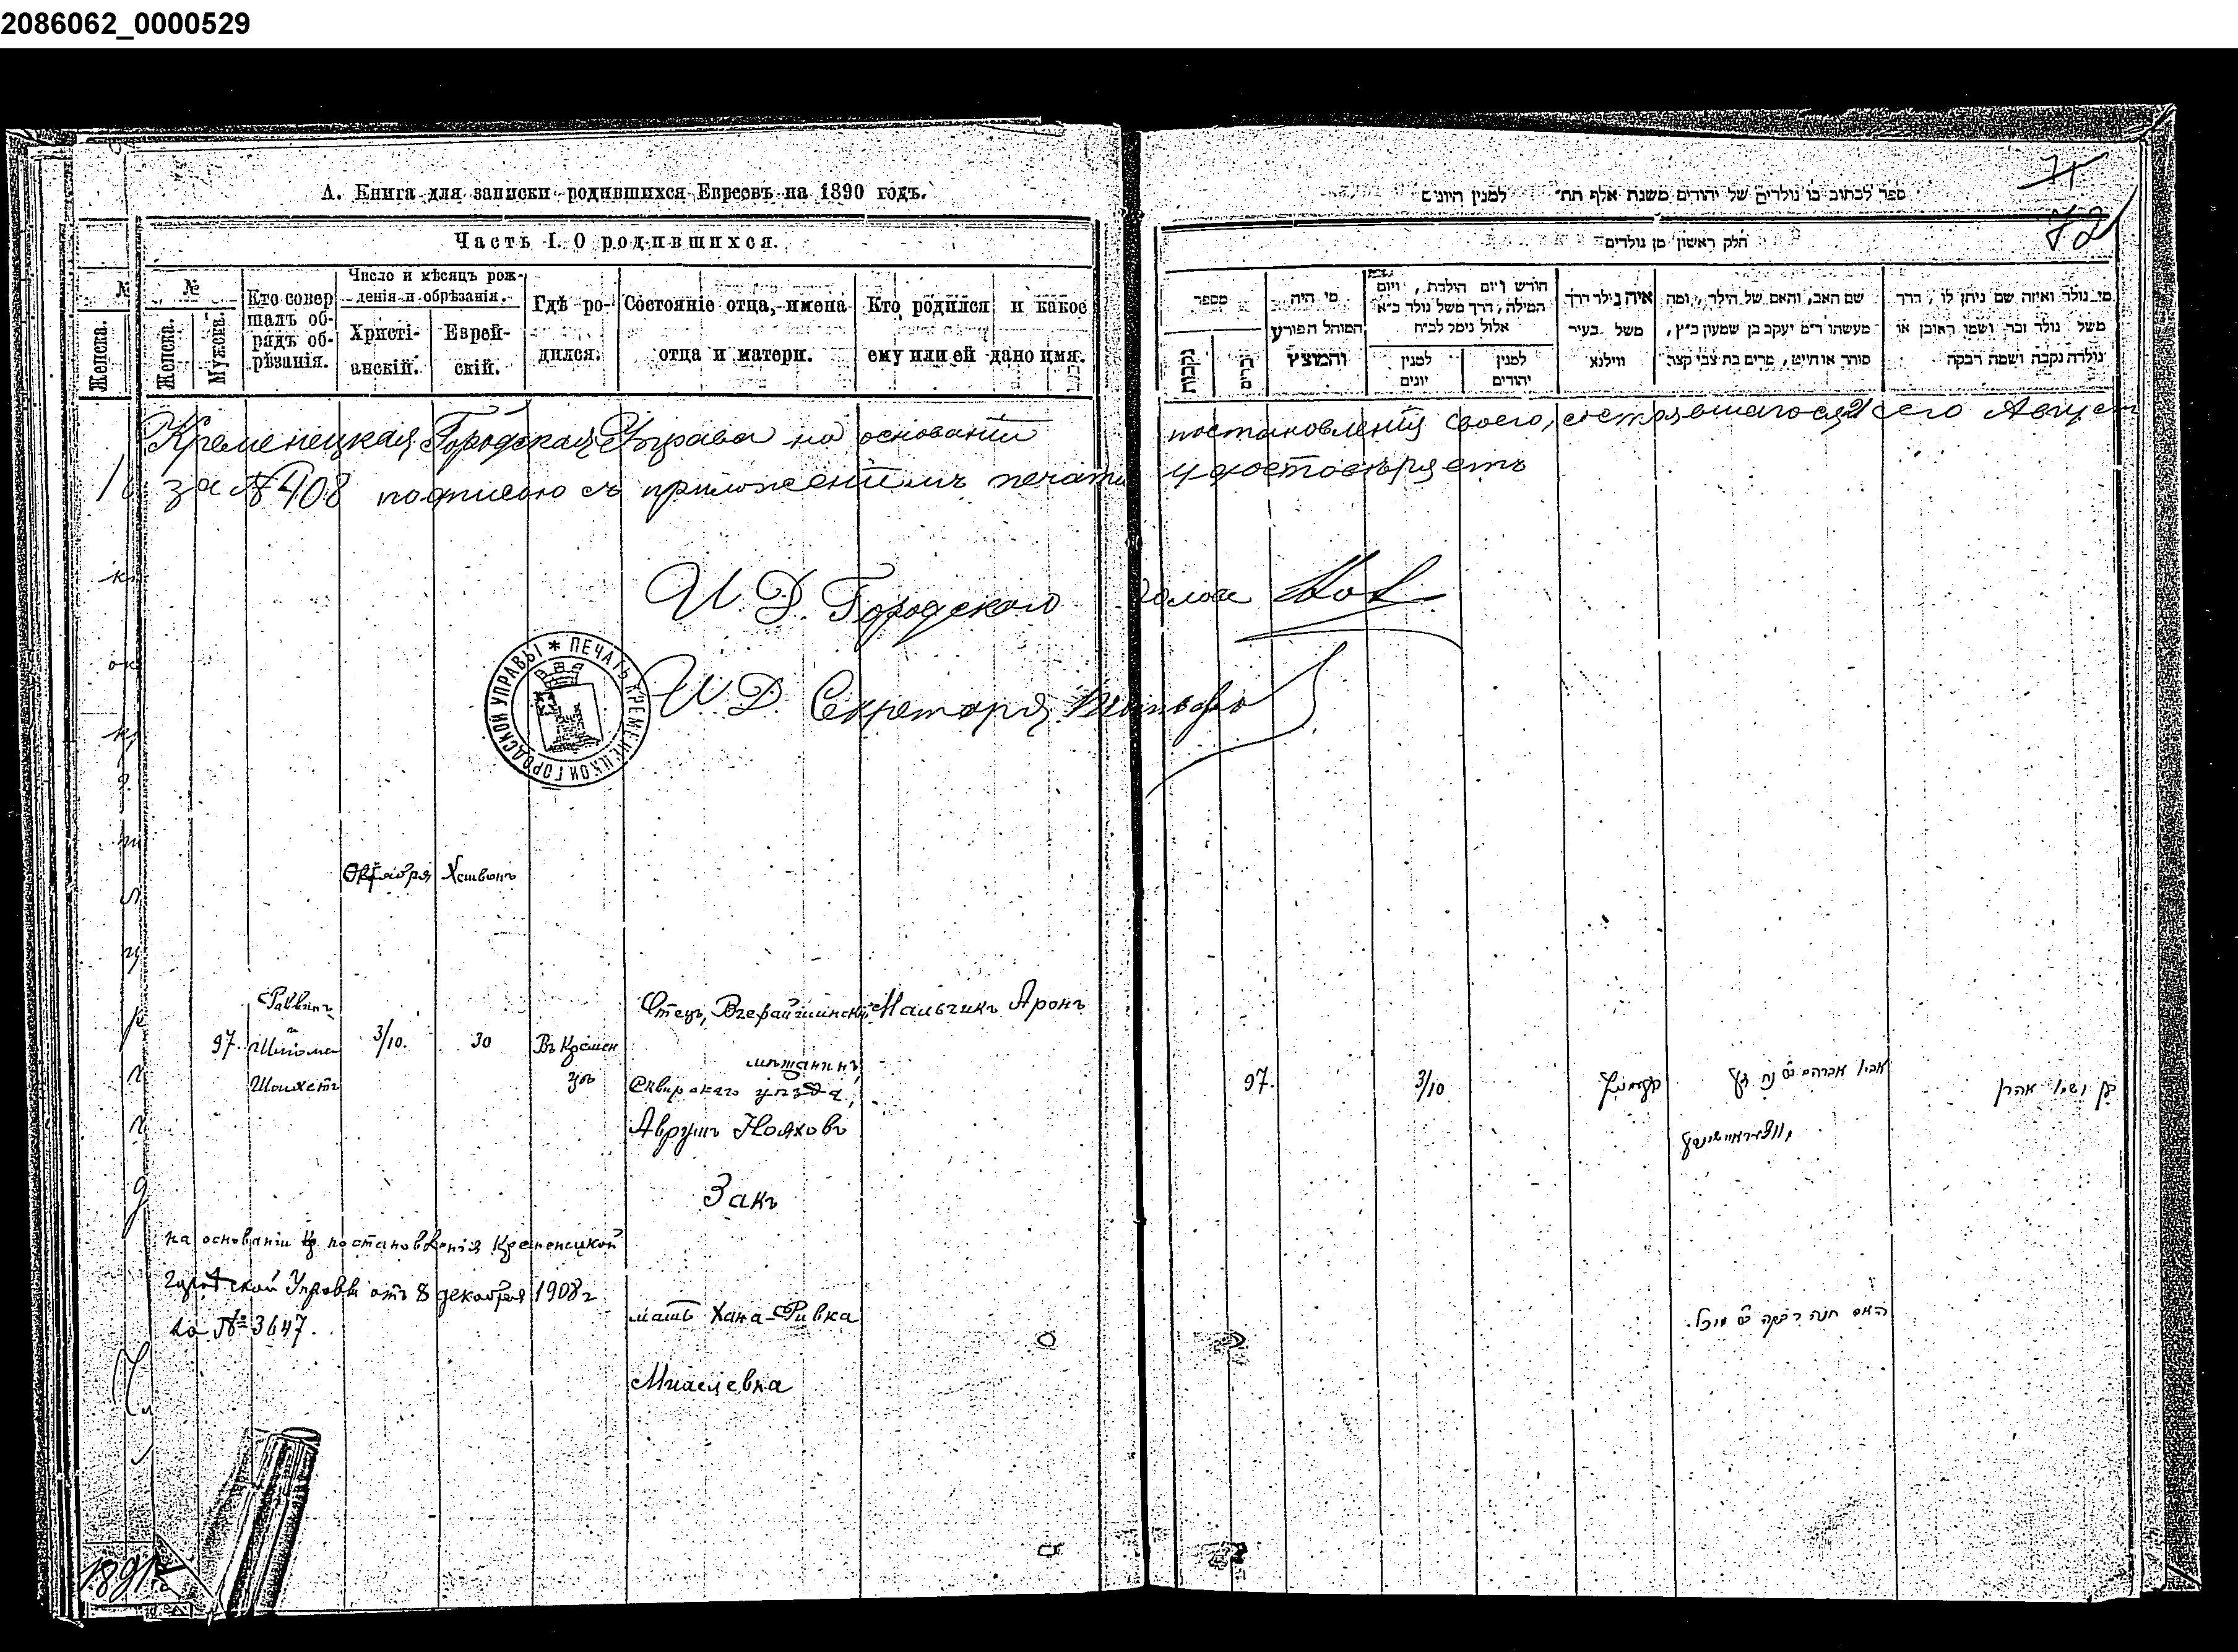 2086062_0000529
А. Книга для записки родившихся Евреевъ на 1890 годъ.
Часть I. О родившихся.
№
№
Женска.
Женска.
Мужска.
Кто совер
шалъ об-
рядъ об-
рѣзанія.
Число и мѣсяцъ рож-
денія и обрѣзанія.
Христі-
анскій.
Еврей-
скій.
Гдѣ ро-
дился.
Состояніе отца, имена
отца и матери.
Кто родился и какое
ему или ей дано имя.
Кременецкая Городская Управа на основаніи
за № 408 подписью съ приложеніемъ печати
И. Д. Городского
И. Д. Секретаря
ПЕЧАТЬ КРЕМЕНЕЦКОЙ ГОРОДСКОЙ УПРАВЫ
Октября Хешвонъ
Раввинъ
и
97. Шлома 3/10. 30 Въ Кремен
Шойхетъ цѣ
Отецъ, Вчерайшинскій Мальчикъ Аронъ
мѣщанинъ
Сквирскаго уѣзда,
Аврумъ Нояховъ
Закъ
на основаніи постановленія Кременецкой
Городской Управы отъ 8 декабря 1908 г
за № 3647.
мать Хана-Ривка
1891
ספר לכתוב בו נולדים של יהודים משנת אלף תת״ למנין היונים
71
72
חלק ראשון מן נולדים
מספר
נקבות
זכרים
מי היה
המוהל הפורע
והמוצץ
חודש ויום הולדת, ויום
המילה, דרך משל נולד כ״א
אלול נימל לכ״ח
למנין
יונים
למנין
יהודים
איה נילד דרך
משל בעיר
ווילנא
שם האב, והאם של הילד, ומה
מעשהו ד״מ יעקב בן שמעון כ״ץ,
סוחר או חייט, מרים בת צבי קצב
מי נולד ואיזה שם ניתן לו, דרך
משל נולד זכר ושמו ראובן או
נולדה נקבה ושמה רבקה
постановленія своего, состоявшагося 2 сего Август
удостовѣряетъ
97.
3/10
אביו אברהם
בן ושמו אהרן
האם חנה רבקה